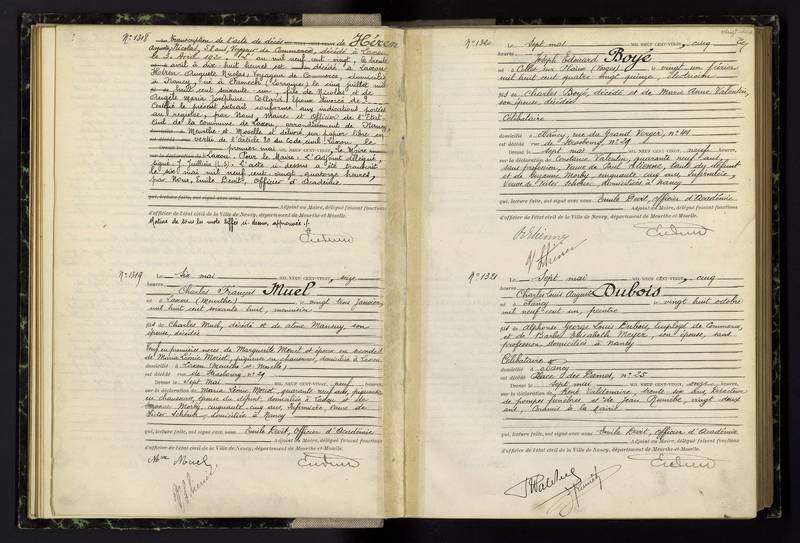 N° 1318
Transcription de l'acte de décès de Héren
Auguste Nicolas, 58 ans, Voyageur de Commerce, décédé à Laxou
le 30 Avril 1920. L'an mil neuf cent vingt, le trente
avril à dix-huit heures est décédé à Laxou
Héren Auguste Nicolas Voyageur de Commerce, domicilié
à Nancy, né à (Lorraine), le cinq juillet mil
huit cent soixante un, fils de Nicolas et de
Angèle Marie Joséphine Collard. Epoux divorcé de
Certifié le présent extrait conforme aux indications portées
au registre, par Nous, Maire et Officier de l'Etat
Civil de la Commune de Laxou, arrondissement de Nancy,
Meurthe et Moselle et délivré sur papier libre en
vertu de l'article 80 du Code civil. Laxou, le
premier mai mil neuf cent vingt. Le Maire
Laxou. Pour le Maire: L'Adjoint délégué,
signé J. Juillière. L'acte ci dessus a été transcrit
le six mai mil neuf cent vingt, quatorze heures,
par Nous, Emile Devit, Officier d'Académie
qui, lecture faite, ont signé avec nous
Adjoint au Maire, délégué faisant fonctions
d'officier de l'état civil de la Ville de Nancy, département de Meurthe-et-Moselle.
Mention de tous les mots biffés ci-dessus, approuvée.
N° 1319
Le Six mai MIL NEUF CENT VINGT, seize
heures Charles François Muel
né à Laxou (Meurthe) le vingt trois Janvier
mil huit cent soixante huit, menuisier
fils de Charles Muel, décédé et de Aline Mansuy, son
épouse, décédée
Veuf en premières noces de Marguerite Monet et époux en secondes
de Marie Léonie Moriot, piqueuse en chaussures, domiciliée à Laxou
domicilié à Laxou (Meurthe et Moselle)
est décédé rue de Strasbourg n° 29
Dressé le Sept Mai MIL NEUF CENT VINGT, neuf heures,
sur la déclaration de Marie Léonie Moriot, quarante neuf ans, piqueuse
en chaussures, épouse du défunt, domiciliée à Laxou et de
Eugénie Morby, cinquante cinq ans, Infirmière, Veuve de
Victor Schérer, domiciliée à Nancy
qui, lecture faite, ont signé avec nous Emile Devit, Officier d'Académie
Adjoint au Maire, délégué faisant fonctions
d'officier de l'état civil de la Ville de Nancy, département de Meurthe-et-Moselle.
Mme Muel
N° 1320
Le Sept mai MIL NEUF CENT VINGT, cinq
heures Joseph Edouard Boyé
né à Celles sur Plaine (Vosges) le vingt un février
mil huit cent quatre vingt quinze, électricien
fils de Charles Boyé, décédé et de Marie Anne Valentin,
son épouse, décédée
Célibataire
domicilié à Nancy, rue du Grand Verger, n° 44
est décédé rue de Strasbourg n° 29
Dressé le Sept mai MIL NEUF CENT VINGT, neuf heures,
sur la déclaration de Constance Valentin, quarante neuf ans,
sans profession, Veuve de Paul Etienne, tante du défunt
et de Eugénie Morby, cinquante cinq ans Infirmière,
Veuve de Victor Schérer domiciliées à Nancy
qui, lecture faite, ont signé avec nous Emile Devit, Officier d'Académie
Adjoint au Maire, délégué faisant fonctions
d'officier de l'état civil de la Ville de Nancy, département de Meurthe-et-Moselle.
N° 1321
Le Sept mai MIL NEUF CENT VINGT, cinq
heures Charles Louis Auguste Dubois
né à Nancy le vingt huit octobre
mil neuf cent un, peintre
fils de Alphonse George Louis Dubois, employé de Commerce,
et de Barbe Elisabeth Meyer, son épouse, sans
profession, domiciliés à Nancy
Célibataire
domicilié à Nancy
est décédé Place des Dames, n° 25
Dressé le Sept mai MIL NEUF CENT VINGT, onze heures,
sur la déclaration de René Valdenaire, trente six ans Directeur
de pompes funèbres et de Jean vingt deux
ans, Commis à la Mairie
qui, lecture faite, ont signé avec nous Emile Devit, Officier d'Académie
Adjoint au Maire, délégué faisant fonctions
d'officier de l'état civil de la Ville de Nancy, département de Meurthe-et-Moselle.